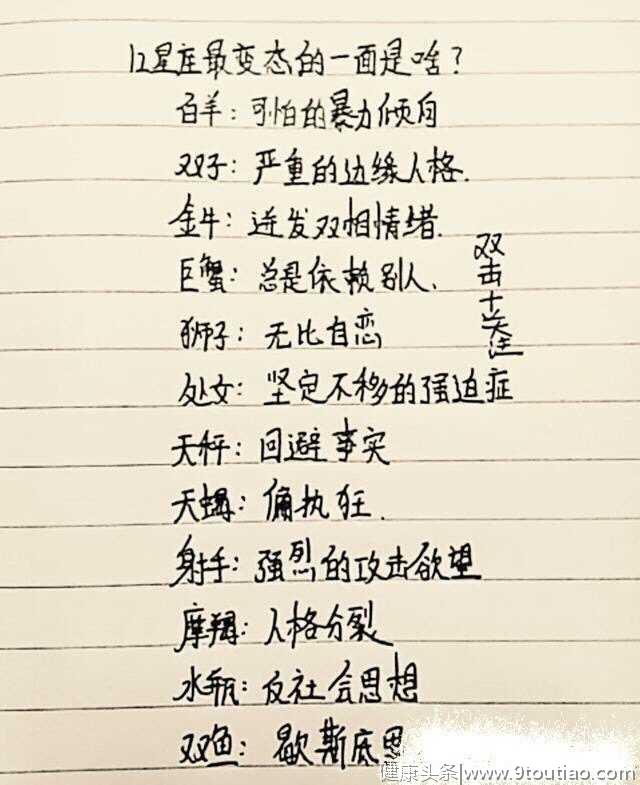 12星座最变态的一面是啥?
白羊:可怕的暴力倾向
双子:严重的边缘人格.
金牛:迸发双相情绪.
巨蟹:总是依赖别人.
狮子:无比自恋
处女:坚定不移的强迫症
天秤:回避事实
天蝎:偏执狂.
射手:强烈的攻击欲望
摩羯:人格分裂
水瓶:反社会思想
双鱼:歇斯底
双击+关注
健康头条|www.9toutiao.com